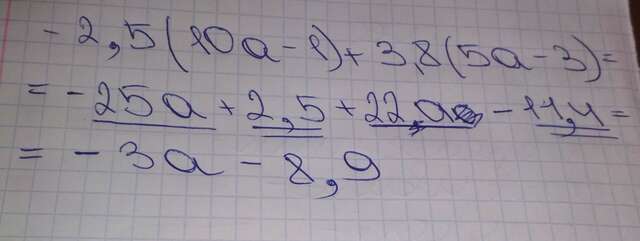 - 2,5(10a-1)+3,8(5a-3)=
= - 25a + 2,5 + 22,a - 11,4 =
= - 3a - 8,9